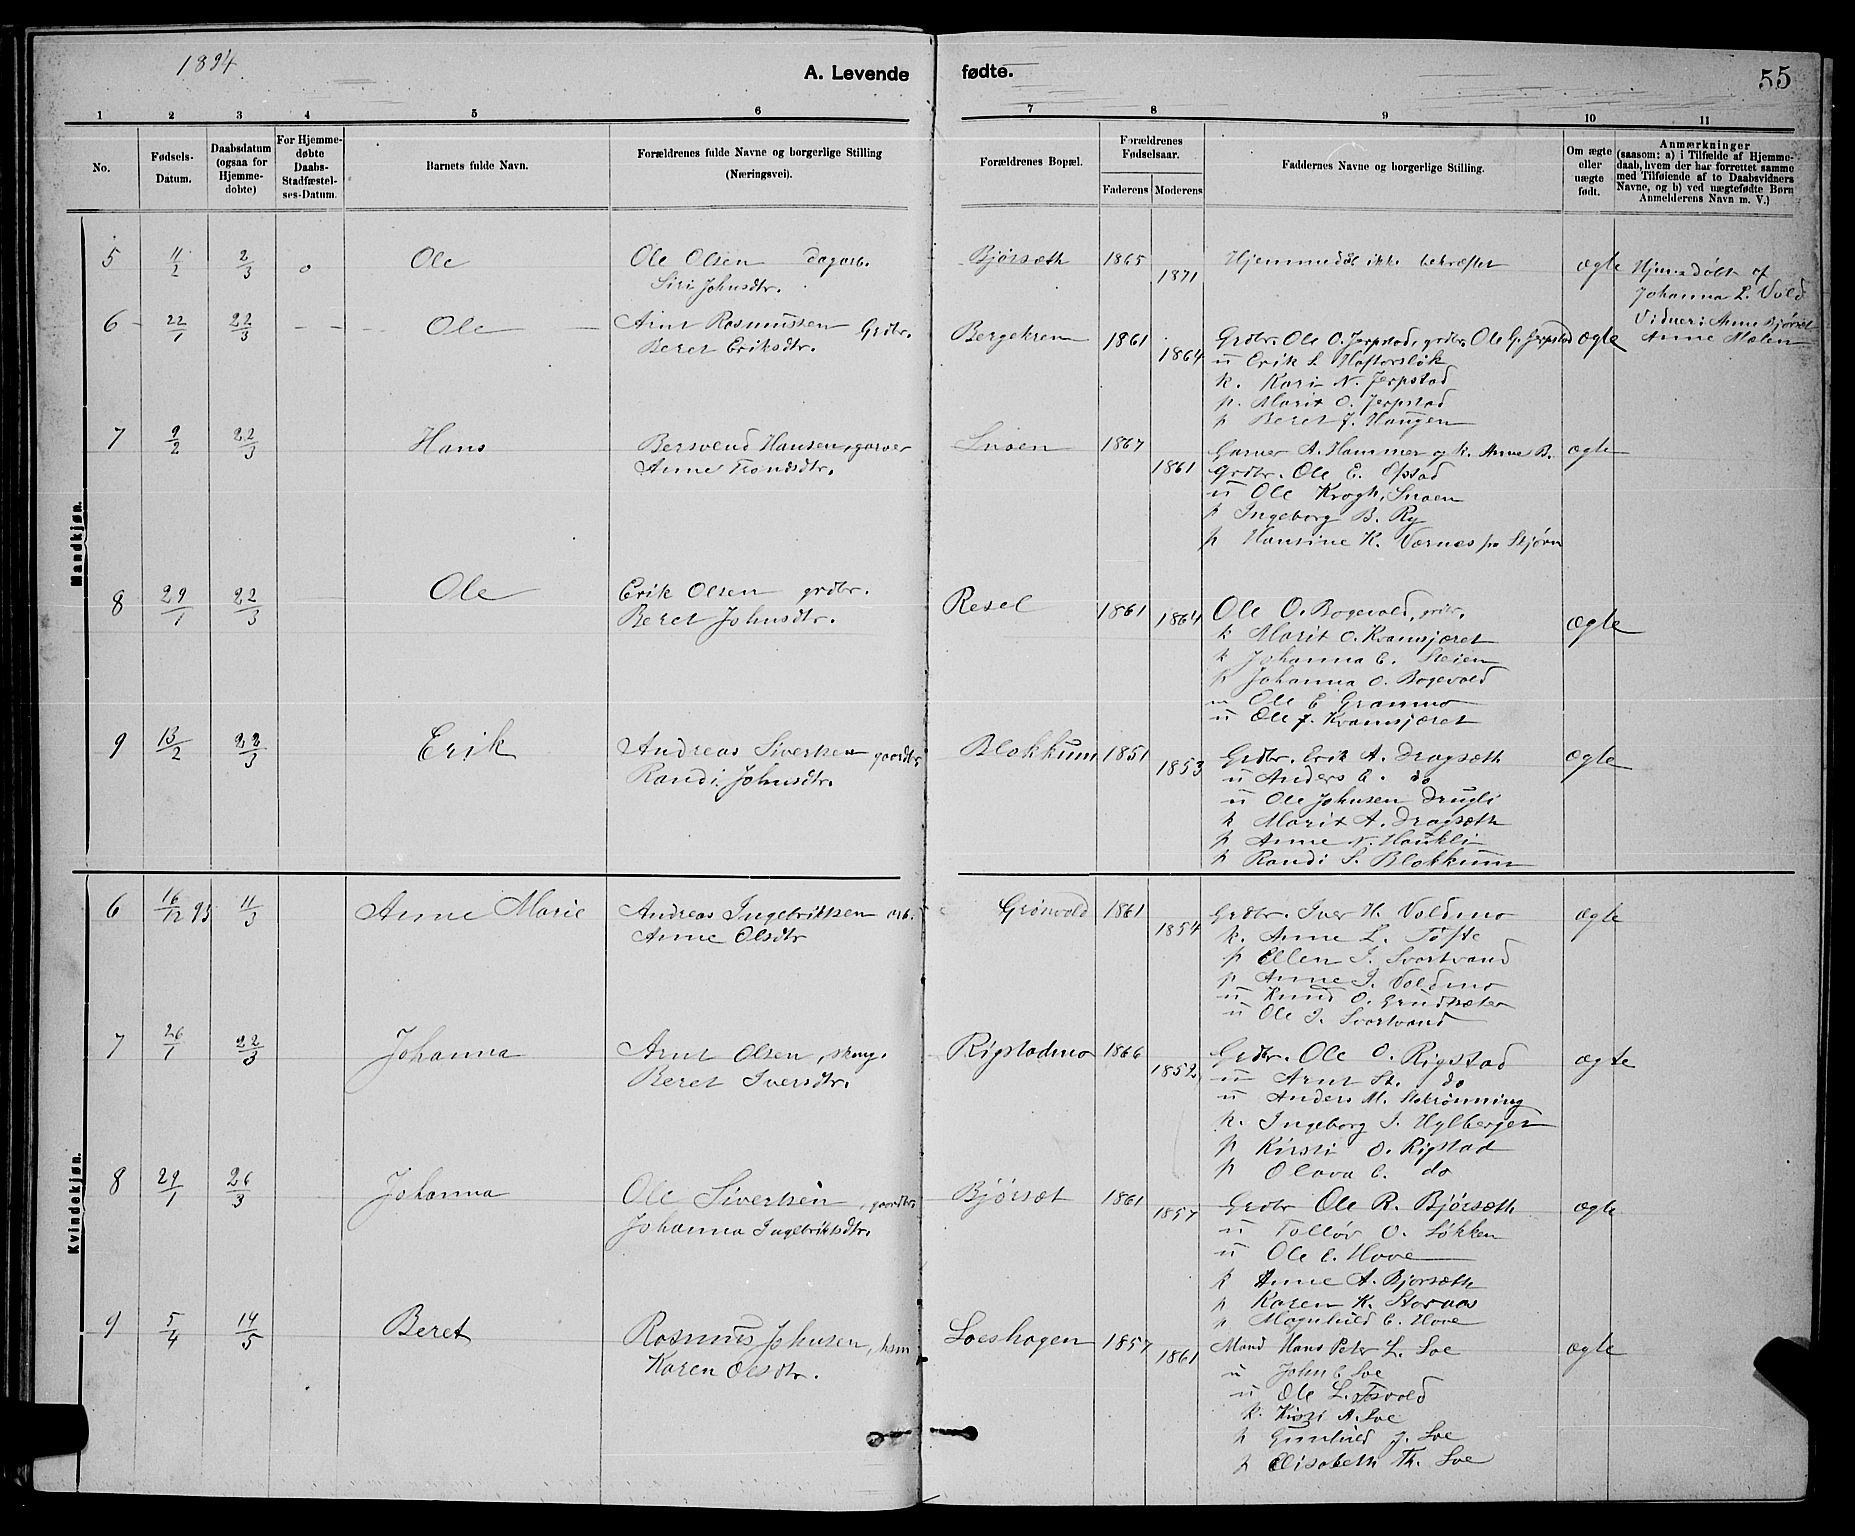 1894.
A. Levende fødte.
55
1 2 3 4 5 6 7 8 9 10 11
No.
Fødsels-Datum.
Daabsdatum (ogsaa for Hjemme-døbte)
For Hjemme-døbte Daabs-Stadfæstel-ses-Datum.
Barnets fulde Navn.
Forældrenes fulde Navne og borgerlige Stilling (Næringsvei).
Forældrenes Bopæl.
Forældrenes Fødselsaar.
Faderens Moderens
Faddernes Navne og borgerlige Stilling.
Om ægte eller uægte født.
Anmærkninger (saasom: a) i Tilfælde af Hjemme-daab, hvem der har forrettet samme med Tilføiende af to Daabsvidners Navne, og b) ved uægtefødte Børn Anmelderens Navn m. V.)
Mandkjøn.
5 11/2 2/3 o Ole Ole Olsen dagarb. Bjørseth 1865 Hjemmedåb ikke bekræftet ægte Hjemdøbt af
Siri Johnsdtr. 1871 Johanna L. Vold
Vidner: Anne Bjørset
Anne Moen
6 22/1 22/3 Ole Arnt Rasmussen Grdbr. Bergskrem 1861 Grdbr. Ole O. Jerpstad, grdbr. Ole G. Jerpstad ægte
Beret Eriksdtr. 1864 u Erik L Haftorsløk
k. Kari N. Jerpstad
p. Marit O. Jerpstad
p Beret J. Haugen
7 9/2 22/3 Hans Bersvend Hansen, garver Snoen 1867 Garver A. Hammer og k. Anne B. ægte
Anne Trondsdtr. 1861 Grdbr. Ole E. Opstad
u Ole Krogh, Snoen
p Ingeborg B. Ry
p Hansine K. Værnes pr Stjørn
8 29/1 22/3 Ole Erik Olsen grdbr. Resel 1861 Ole O. Bogevold, grdbr. ægte
Beret Johnsdtr. 1864 k Marit O. Kvamsjæret
k Johanna E. Steien
p Johanna O. Bogevold
u Ole E Grammo
u Ole J. Kvamsjæret
9 13/2 22/3 Erik Andreas Sivertsen gaardbr. Blokkum 1851 Grdbr. Erik A. Dragseth ægte
Randi Johnsdtr. 1853 u Anders E. do
u Ole Johnsen Drugli
k Marit A. Dragseth
p Anne N. Haukli
p Randi S. Blokkum
Kvindekjøn.
6 16/12 93 11/3 Anne Marie Andreas Ingebriktsen arb. Grønvold 1861 Grdbr. Iver H. Voldmo ægte
Anne Olsdtr 1854 k. Anne L. Tofte
p Ellen I. Svartvand
p Anne I. Voldmo
u Knud O. Grindsæter
u Ole I. Svartvand
7 26/1 22/3 Johanna Arnt Olsen, skrog. Rigstadmo 1866 Grdbr. Ole O. Rigstad ægte
Beret Iversdtr. 1852 u Arnt St. do
u Anders M. Stokrønning
k. Ingeborg J. Hylberget
p Kirsti O. Rigstad
p Olava E. do
8 29/1 26/3 Johanna Ole Sivertsen, gaardbr. Bjørset 1861 Grdbr Ole R. Bjørseth ægte
Johanna Ingebriktsdtr. 1857 u Tollöv O. Løkken
u Ole E. Hove
k Anne A. Bjørseth
p Karen K. Stornos
p Magnhild E. Hove
9 5/4 14/5 Beret Rasmus Johnsen, hsm Loeshagen 1857 Mand Hans Peter L. Loe ægte
Karen Olsdtr. 1861 u John E Loe
u Ole L. Tsvold
k. Kirsti A. Loe
p Gunhild J. Loe
p Elisabeth Th. Loe